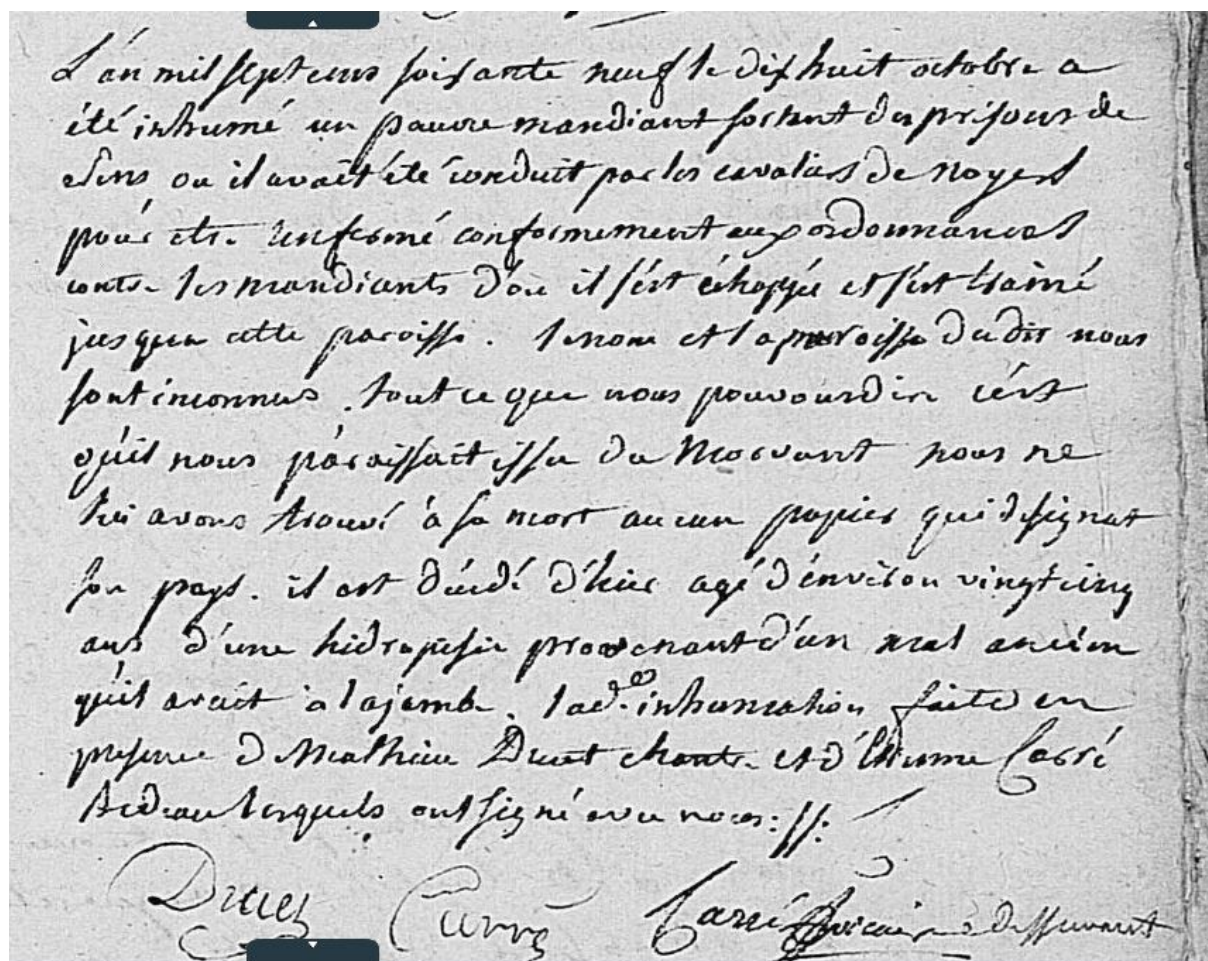 L'an mil sept cens soixante neuf le dix huit octobre a
été inhumé un pauvre mandiant sortant des prisons de
Sens ou il avait été conduit par les cavaliers de noyers
pour etre renfermé conformement aux ordonnances
contre les mandiants d'ou il s'est échappé et s'est trainé
jusqua cette paroisse. le nom et la paroisse du dit nous
sont inconnus. tout ce que nous pouvons dire c'est
qu'il nous paraissait issu du Morvant nous ne
lui avons trouvé à sa mort aucun papier qui designat
son pays. il est décédé d'hier agé d'environ vingt cinq
ans d'une hidropisie provenant d'un mal ancien
qu'il avait à la jambe. lad.e inhumation faite en
presence de Mathieu Druet chantre et d'Etienne Carré
Bedeau lesquels ont signé avec nous:
Druet Carré Carré vicaire desservant